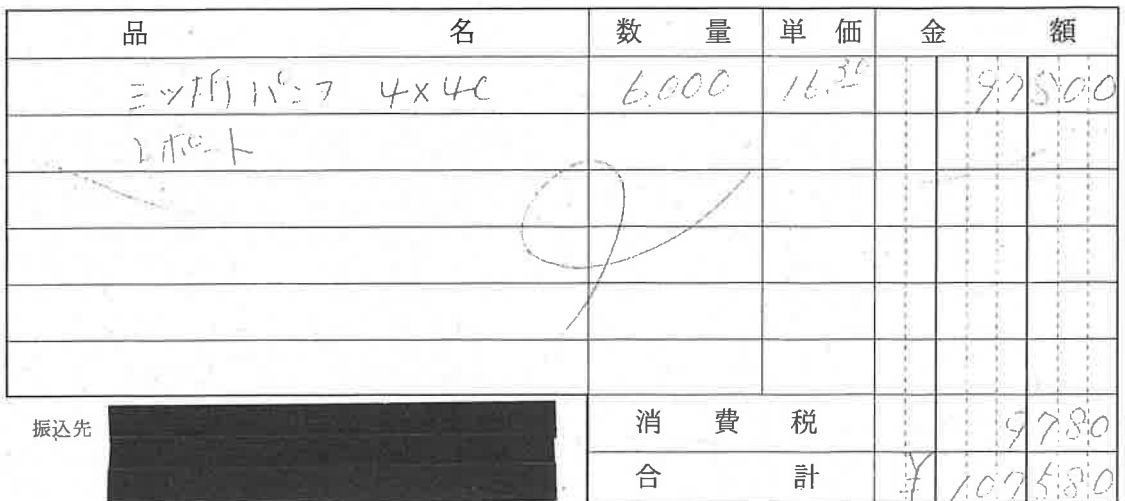 品名 数量 単価 金額
ミツ折パンフ 4×4C 6,000 16.30 97800
レポート
振込先
消費税 9780
合計 ¥107580